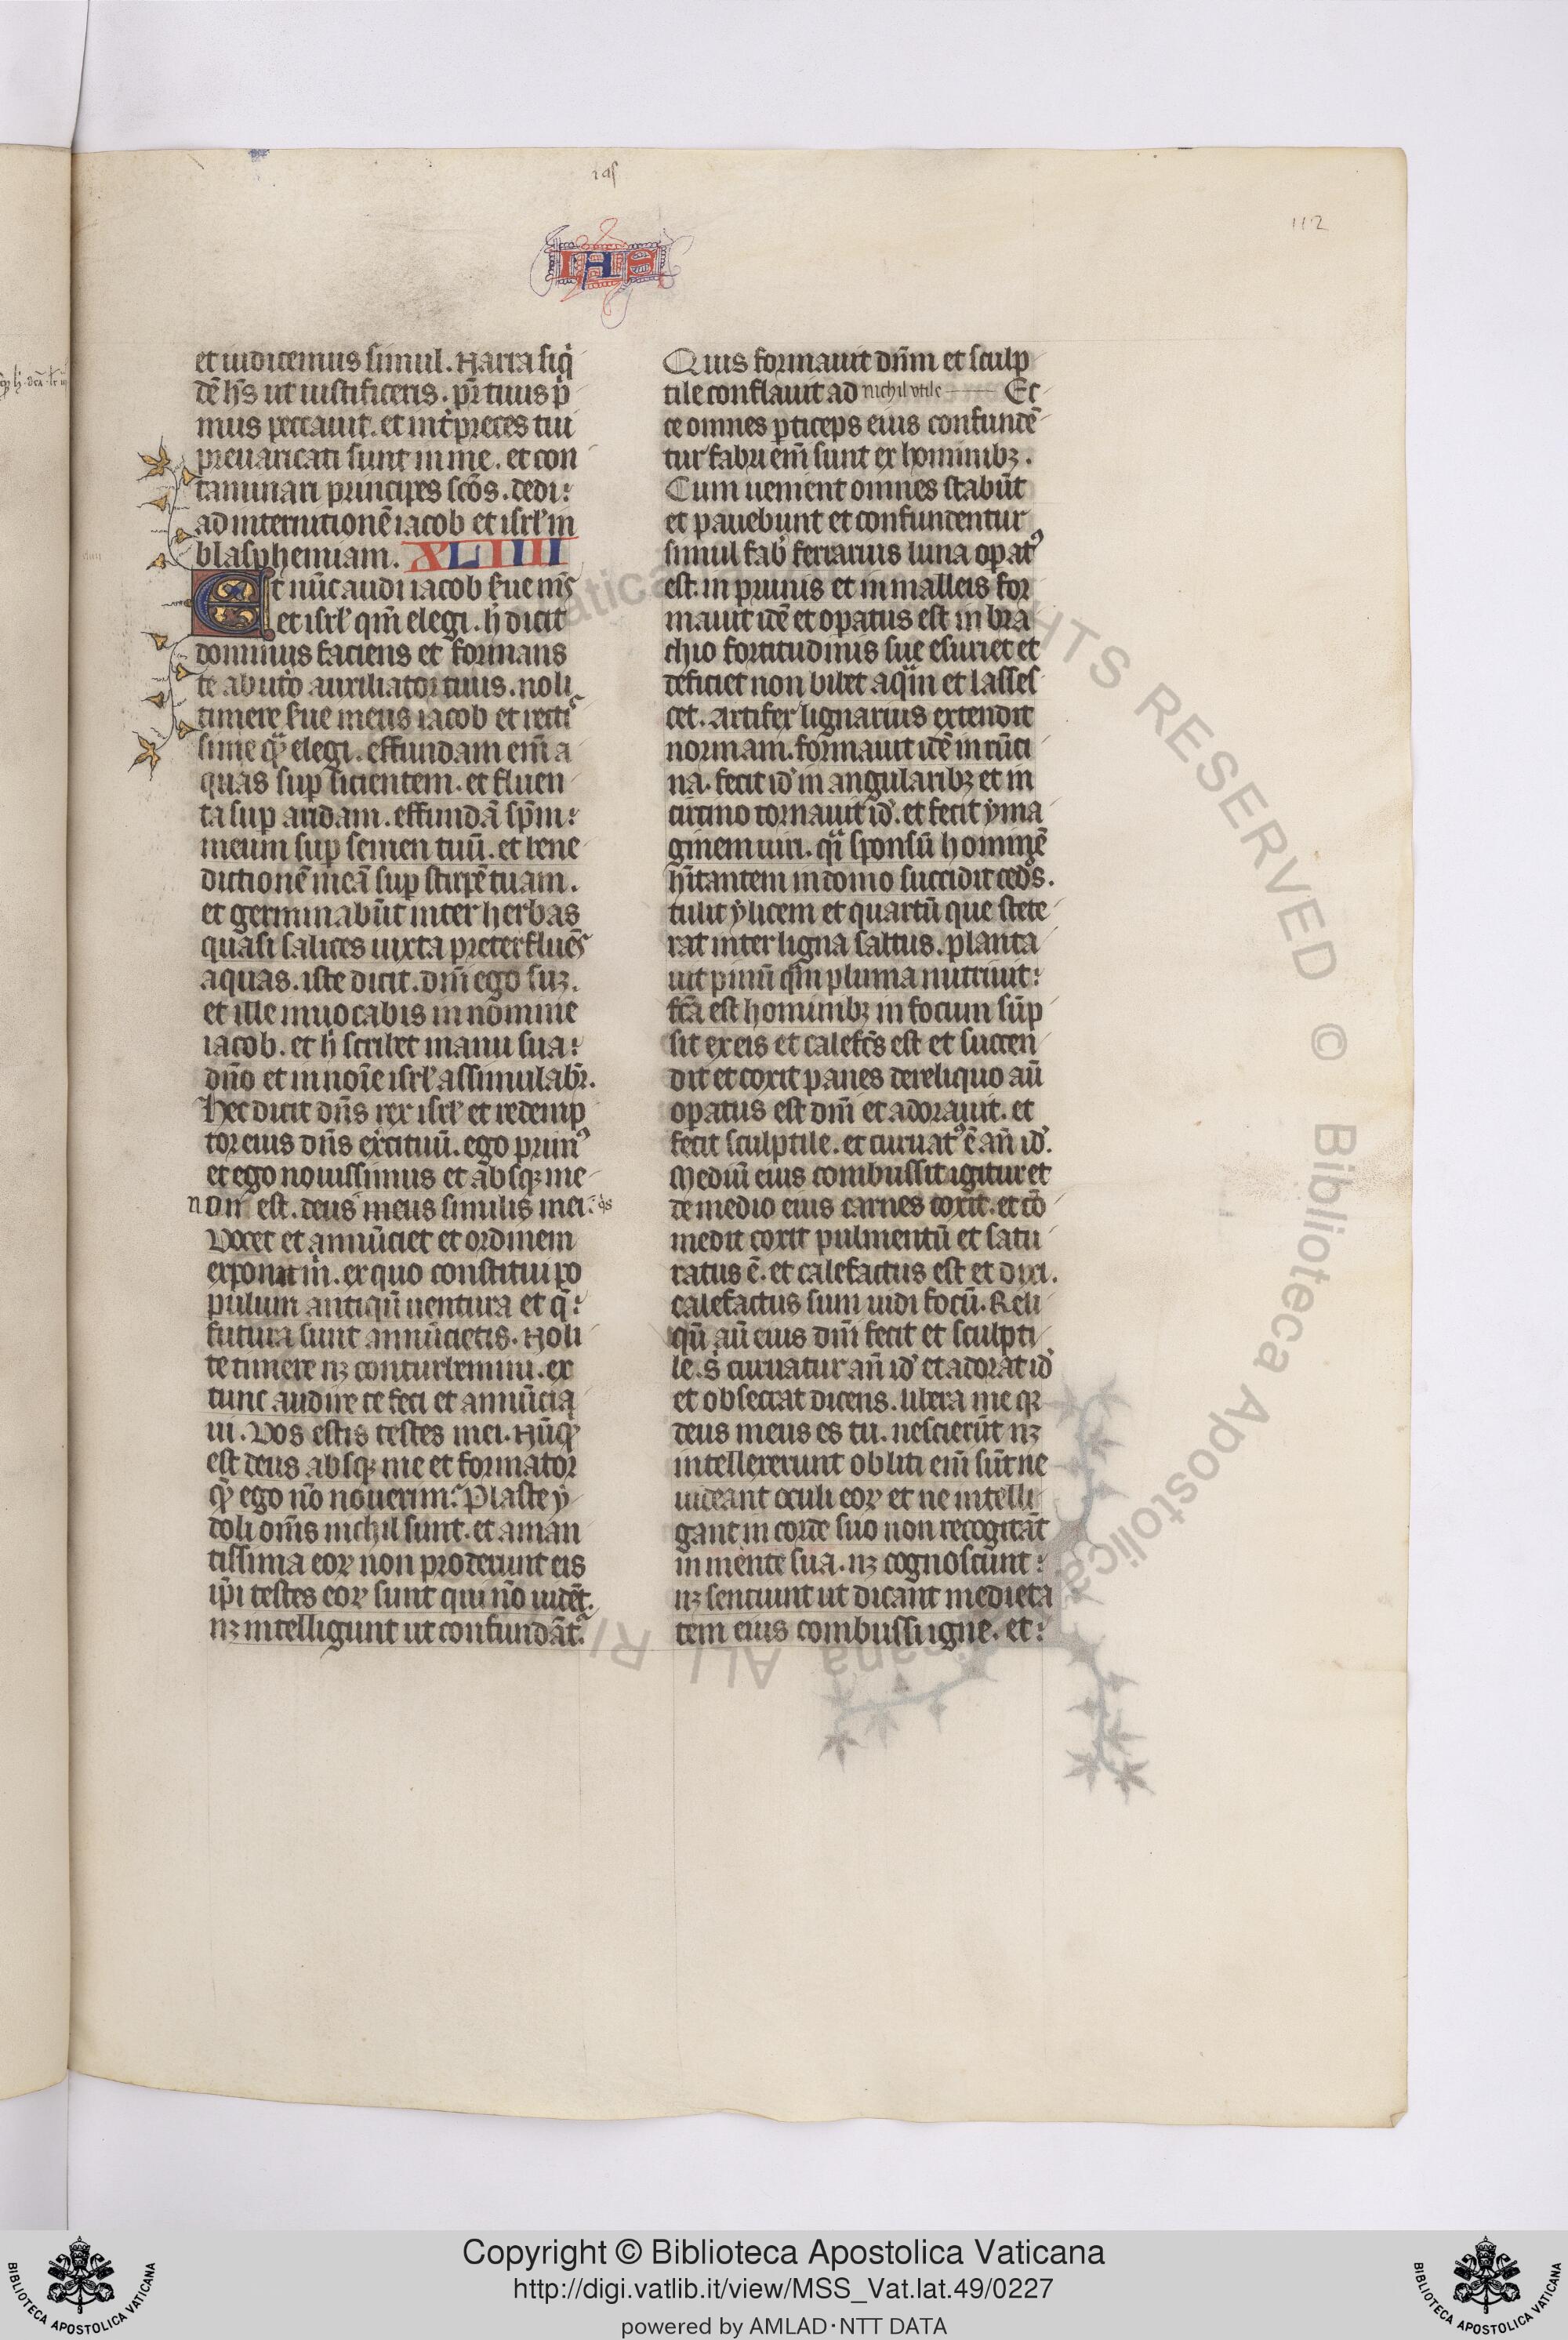 ias
112
IAS
et iudicemus simul. Narra siq̉
dē h̄s ut iustificeris. pr̄ tuus p̉
mus peccauit. et int̉preces tui
preuaricati sunt in me. et con
taminaui principes sc̄os. dedi:
ad internitionē iacob et isrl̉ in
blasphemiam. XLIIII
Et nūc audi iacob s̉ue m̄s
et isrl̉ qm̄ elegi. h̉ dicit
dominus faciens et formans
te ab ut̉o auxiliator tuus. noli
timere s̉ue meus iacob et recti
sime qͤ elegi. effundam em̄ a
quas sup sicientem. et fluen
ta sup aridam. effundā sp̄m:
meum sup semen tuū. et bene
dictionē meā sup stirpē tuam.
et germinabūt inter herbas
quasi salices iuxta preterfluēs
aquas. iste dicit. dn̄i ego suꝫ.
et ille inuocabis in nomine
iacob. et h̉ scribet manu sua:
dn̄o et in noīe isrl̉ assimulabr̄.
Hec dicit dn̄s rex isrl̉ et redemp
tor eius dn̄s ex̉cituū. ego primꝰ
et ego nouissimus et absqꝫ me
non est. deus meus similis mei. q̉s
Vocet et annūciet et ordinem
exponat m̉. ex quo constitui po
pulum antiqū uentura et q̄:
futura sunt annūcietis. Noli
te timere nꝫ conturbemini. ex
tunc audire te feci et annūcia
ui. Vos estis testes mei. Nūqͥd
est deus absqꝫ me et formator
qͤ ego nō nouerim. Plaste y
doli om̄s nichil sunt. et aman
tissima eoꝝ non proderunt eis
ip̄i testes eoꝝ sunt qui nō uidēt.
nꝫ intelligunt ut confundāt᷑.
Quis formauit dn̄m et sculp
tile conflauit ad nichil utile Ec
ce omnes pticeps eius confundē
tur fabri em̄ sunt ex hominibꝫ.
Cum uenient omnes stabūt
et pauebunt et confundentur
simul fab̉ ferrarius luna opatꝰ
est. in prunis et in malleis for
mauit idē et opatus est in bra
chio fortitudinis sue esuriet et
deficiet non bibet aqͣm et lasses
cet. Artifex lignarius extendit
normam. formauit idē in rūci
na. fecit id̉ in angularibꝫ et in
circino tornauit id̉. et fecit yma
ginem uiri. qͣi sponsū hominē
h̄itantem in domo succidit ced̉s.
tulit ylicem et quartū que stete
rat inter ligna saltus. planta
uit pinū qͣm pluma nutriuit:
fc̄a est hominibꝫ in focum sūp
sit ex eis et calefc̄s est et succen
dit et coxit panes de reliquo aū
opatus est dm̄ et adorauit. et
fecit sculptile. et curuatꝰ ē an̄ id̉.
Mediū eius combussit igitur et
de medio eius carnes coxit. et cō
medit coxit pulmentū et satu
ratus ē. et calefactus est et dixi.
calefactus sum uidi focū. Reli
qū aū eius dm̄ fecit et sculpti
le. s̉ curuatur an̄ id̉ et adorat id̉
et obsecrat dicens. libera me qꝛ
deus meus es tu. nescierūt nꝫ
intellexerunt obliti em̄ sūt ne
uideant oculi eoꝝ et ne intelli
gant in corde suo non recogitāt
in mente sua. nꝫ cognoscūnt:
nꝫ senciunt ut dicant medieta
tem eius combussi igne. et:
Copyright © Biblioteca Apostolica Vaticana
http://digi.vatlib.it/view/MSS_Vat.lat.49/0227
powered by AMLAD·NTT DATA